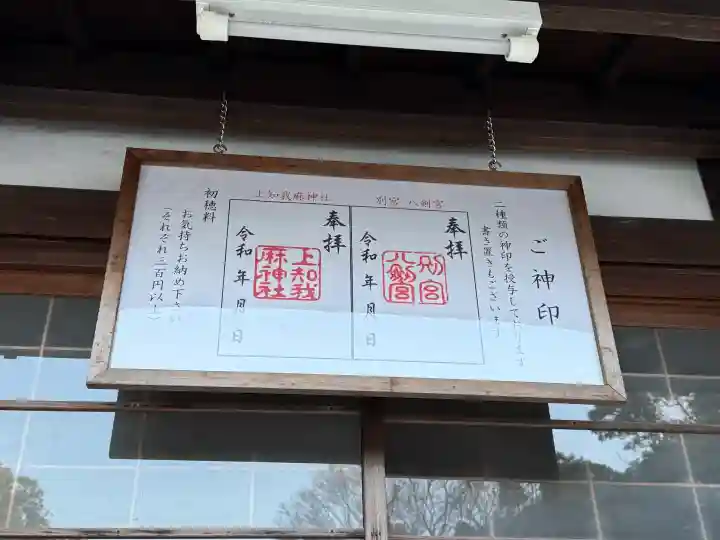 ご神印
二種類の神印を授与しております
書き置きもございます
別宮 八剣宮
奉拝
別宮
八剱宮
令和 年 月 日
上知我麻神社
奉拝
上知我
麻神社
令和 年 月 日
初穂料
お気持ちお納め下さい
(それぞれ三百円以上)